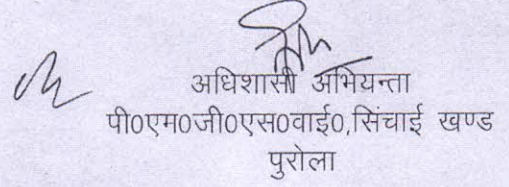 अधिशासी अभियन्ता
पी0एम0जी0एस0वाई0,सिंचाई खण्ड
पुरोला